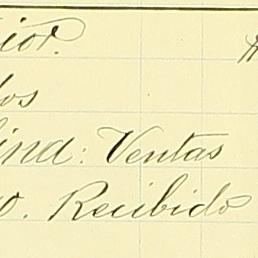 rior.
los
ina: Ventas
o. Recibido